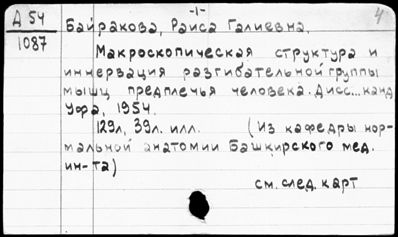 -1-
4
Д 54
1087
Байракова, Раиса Галиевна.
Макроскопическая структура и
иннервация разгибательной группы
мышц предплечья человека. Дисс... канд
Уфа, 1954.
129л, 39л. илл. (Из кафедры нор-
мальной анатомии Башкирского мед.
ин-та)
см. след. карт